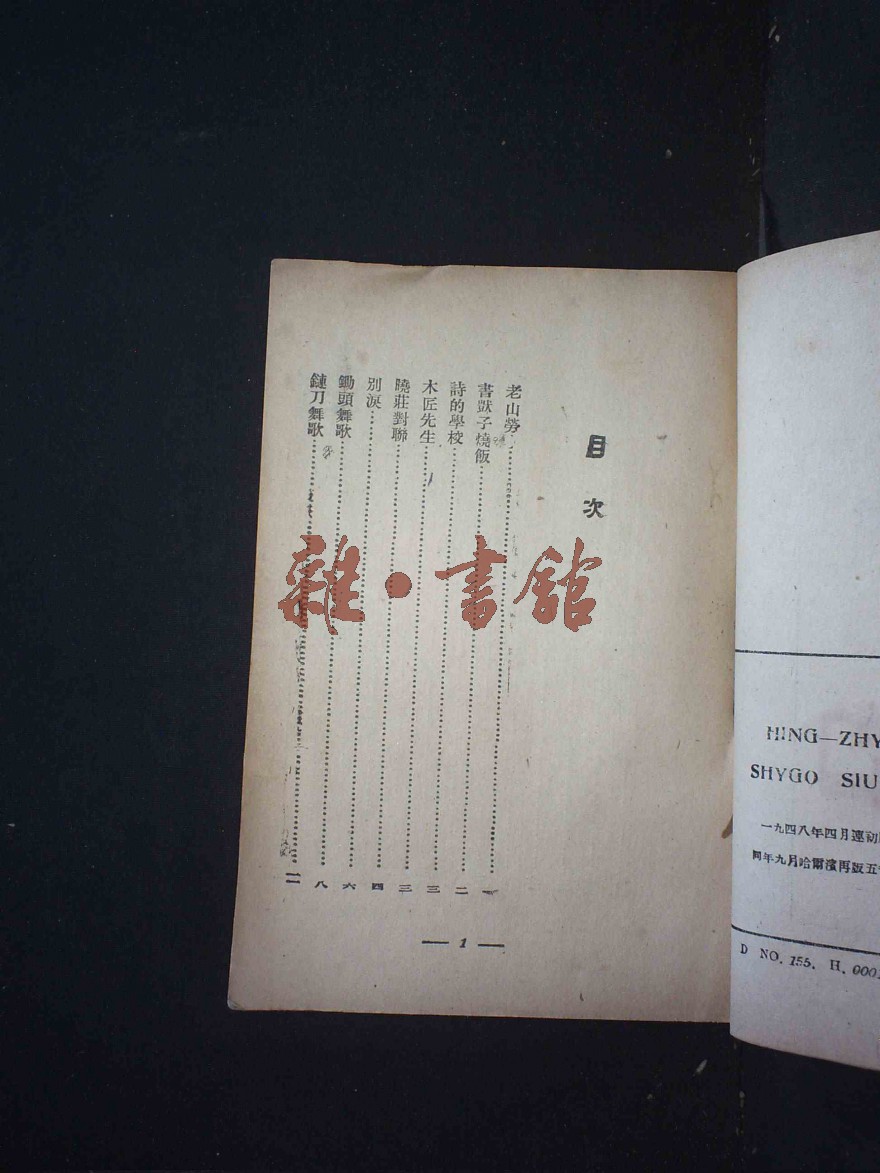 目次
老山勞……一
書獃子燒飯……二
詩的學校……二
木匠先生……三
曉莊對聯……三
別淚……四
鋤頭舞歌……六
鐮刀舞歌……一一
— 1 —
雜·書館
HING—ZHY
SHYGO SIU
一九四八年四月連初
同年九月哈爾濱再版五
D NO. 155. H. 000